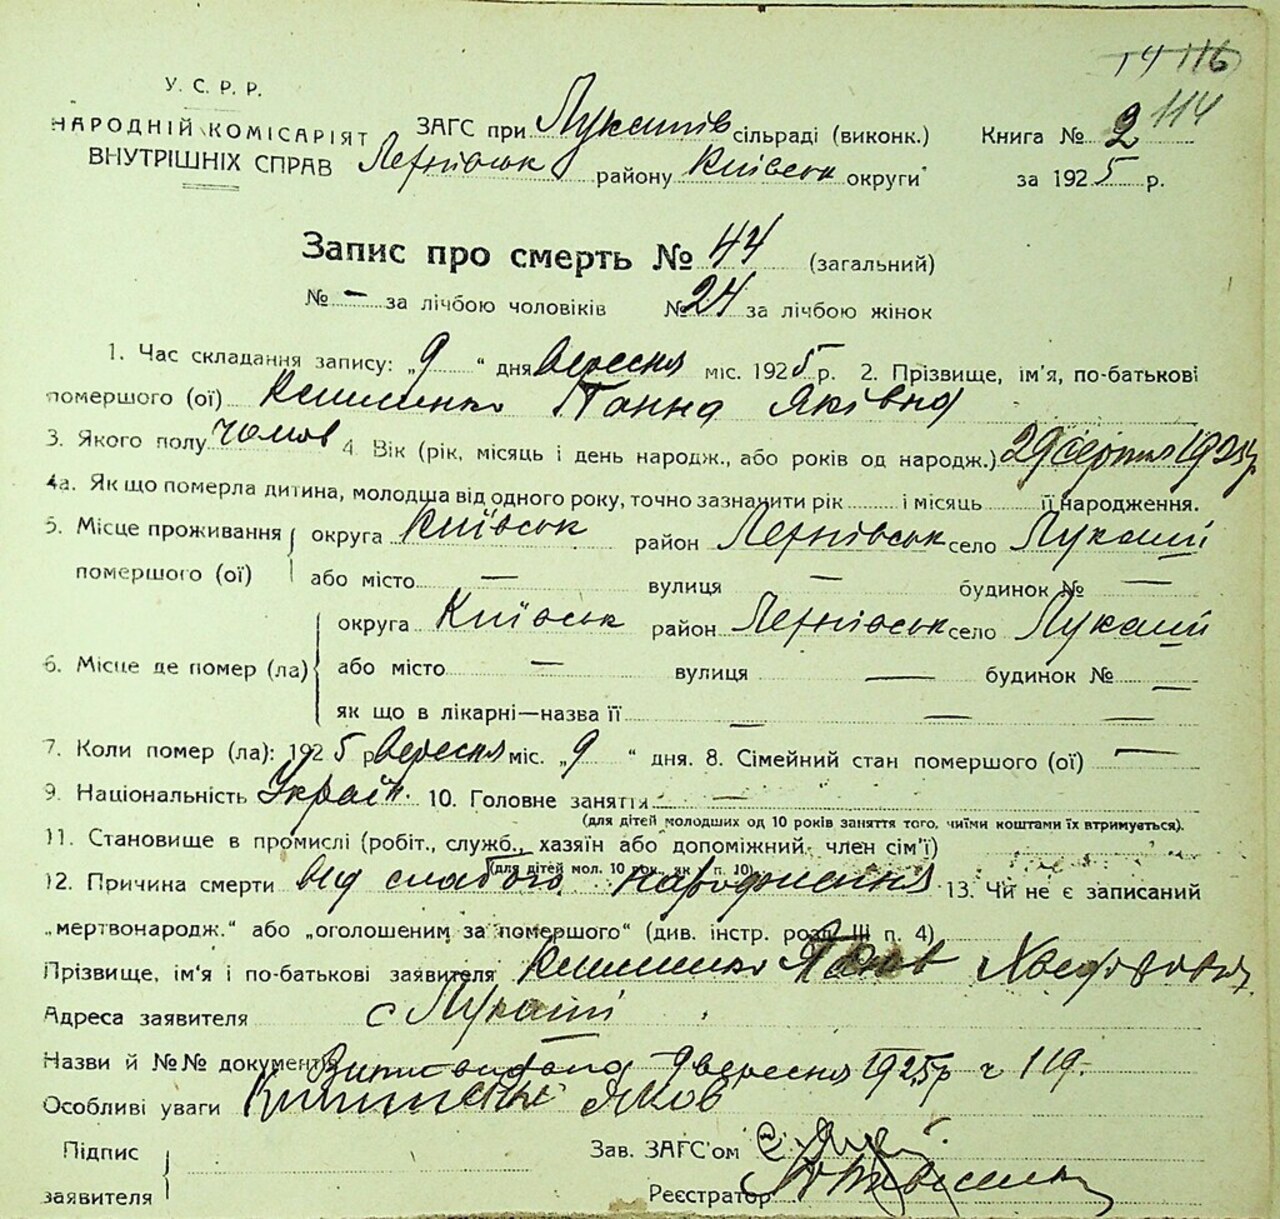 14 116
114
У. С. Р. Р.
НАРОДНІЙ КОМІСАРІЯТ
ВНУТРІШНІХ СПРАВ
ЗАГС при Лукашів сільраді (виконк.)
району Київськ округи
Книга № 2
за 1925 р.
Запис про смерть № 44 (загальний)
№ — за лічбою чоловіків № 24 за лічбою жінок
1. Час складання запису: „9 “ дня вересня міс. 1925 р. 2. Прізвище, ім'я, по-батькові
помершого (ої) Ганна Яківна
3. Якого полу 4. Вік (рік, місяць і день народж., або років од народж.) 29 серпня 1925 р
4а. Як що померла дитина, молодша від одного року, точно зазначити рік і місяць її народження.
5. Місце проживання помершого (ої) округа Київськ район село Лукаші
або місто — вулиця — будинок № —
6. Місце де помер (ла) округа Київськ район село Лукаші
або місто — вулиця — будинок № —
як що в лікарні—назва її — — —
7. Коли помер (ла): 1925 р вересня міс. „9 “ дня. 8. Сімейний стан помершого (ої) —
9. Національність Україн. 10. Головне заняття —
(для дітей молодших од 10 років заняття того, чиїми коштами їх втримується).
11. Становище в промислі (робіт., служб., хазяїн або допоміжний член сім'ї)
(для дітей мол. 10 рок. як п. 10)
12. Причина смерти від слабого народження 13. Чи не є записаний
„мертвонародж.“ або „оголошеним за помершого“ (див. інстр. розд. III п. 4)
Прізвище, ім'я і по-батькові заявителя Яків
Адреса заявителя с Лукаші
Назви й №№ документів 9 вересня 1925 р ч 119.
Особливі уваги Яков
Підпис
заявителя
Зав. ЗАГС'ом
Реєстратор